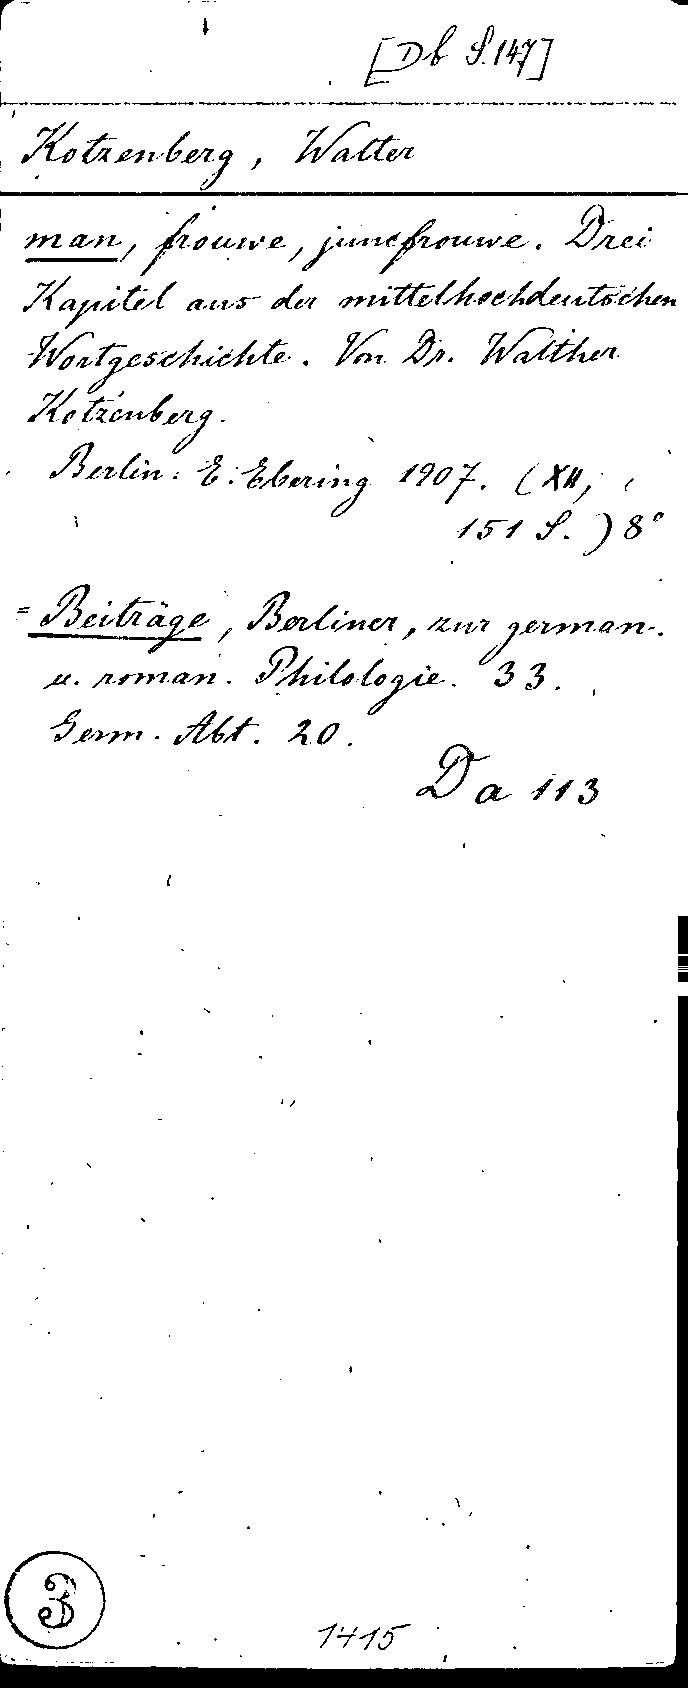 [Db S. 147]
Kotzenberg, Walter
man, frouwe, juncfrouwe. Drei
Kapitel aus der mittelhochdeutschen
Wortgeschichte. Von Dr. Walther
Kotzenberg.
Berlin: E. Ebering 1907. (XII,
151 S.) 8°
= Beiträge, Berliner, zur german.
u. roman. Philologie. 33.
Germ. Abt. 20.
Da 113
3
1415